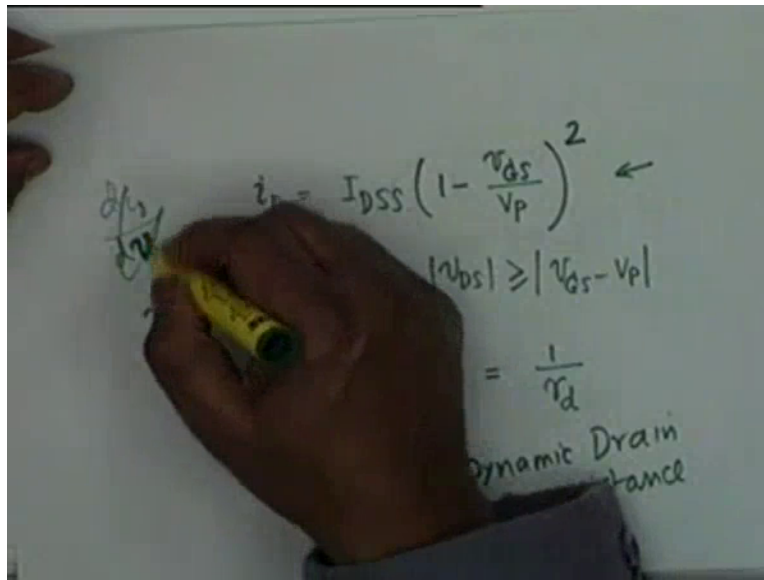 i_D = I_DSS (1 - v_GS / V_P)^2 ←
|v_DS| ≥ |v_GS - V_P|
= 1 / r_d
Dynamic Drain